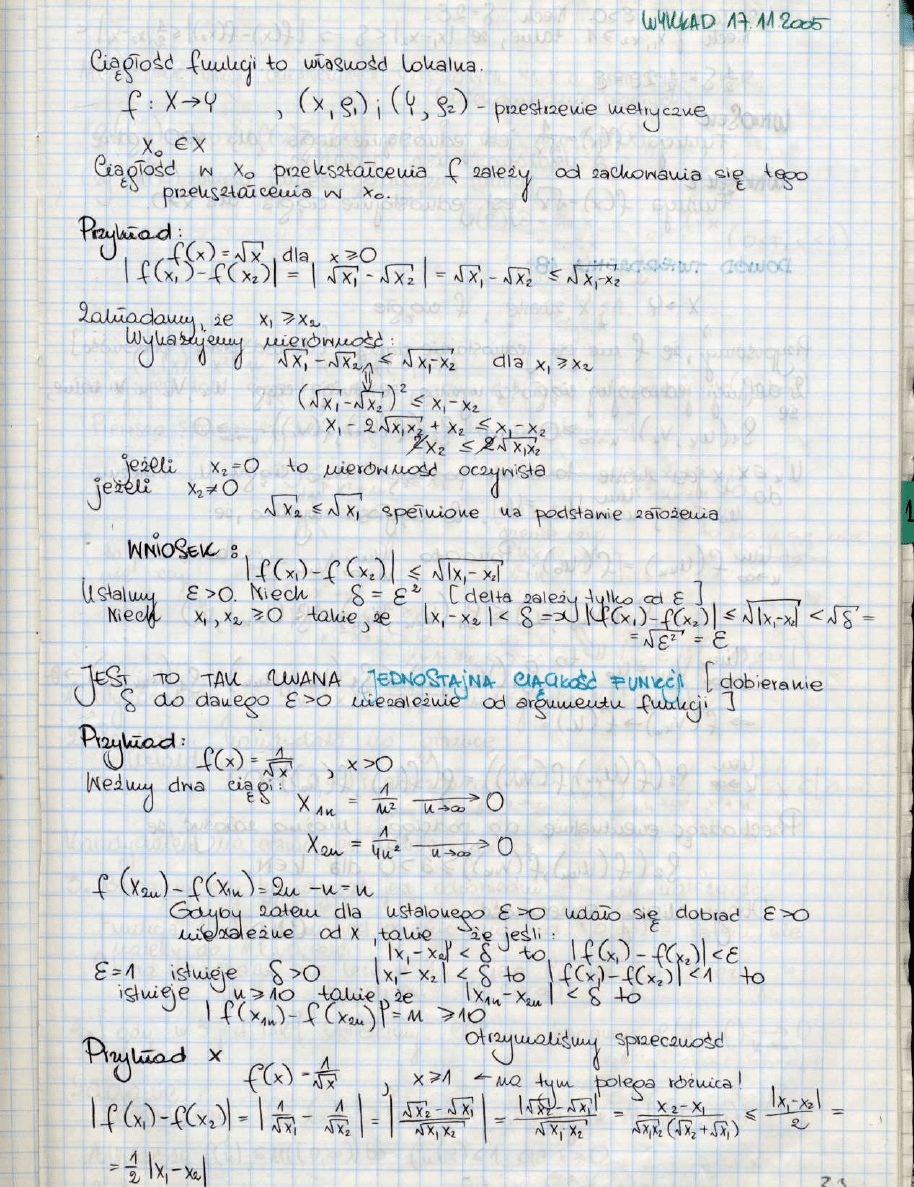 WYKŁAD 17.11.2005
Ciągłość funkcji to własność lokalna.
f : X → Y , (X, ϱ₁) i (Y, ϱ₂) - przestrzenie metryczne
x₀ ∈ X
Ciągłość w x₀ przekształcenia f zależy od zachowania się tego
przekształcenia w x₀.
Przykład:
f(x) = √x dla x ≥ 0
|f(x₁) - f(x₂)| = |√x₁ - √x₂| = √x₁ - √x₂ ≤ √(x₁-x₂)
Zakładamy, że x₁ ≥ x₂
Wykazujemy nierówność:
√x₁ - √x₂ ≤ √(x₁-x₂) dla x₁ ≥ x₂
⇕
(√x₁ - √x₂)² ≤ x₁ - x₂
x₁ - 2√(x₁x₂) + x₂ ≤ x₁ - x₂
2x₂ ≤ 2√(x₁x₂)
jeżeli x₂ = 0 to nierówność oczywista
jeżeli x₂ ≠ 0
√x₂ ≤ √x₁ spełnione na podstawie założenia
WNIOSEK:
|f(x₁) - f(x₂)| ≤ √|x₁-x₂|
Ustalmy ε > 0. Niech δ = ε² [delta zależy tylko od ε]
Niech x₁, x₂ ≥ 0 takie, że |x₁-x₂| < δ => |f(x₁) - f(x₂)| ≤ √|x₁-x₂| < √δ =
= √ε² = ε
JEST TO TAK ZWANA JEDNOSTAJNA CIĄGŁOŚĆ FUNKCJI [dobieranie
δ do danego ε > 0 niezależnie od argumentu funkcji]
Przykład:
f(x) = 1/√x , x > 0
Weźmy dwa ciągi:
x₁ₙ = 1/n² →(n→∞) 0
x₂ₙ = 1/4n² →(n→∞) 0
f(x₂ₙ) - f(x₁ₙ) = 2n - n = n
Gdyby zatem dla ustalonego ε > 0 udało się dobrać ε > 0
niezależne od x, takie że jeśli:
|x₁-x₂| < δ to |f(x₁) - f(x₂)| < ε
ε = 1 istnieje δ > 0 |x₁-x₂| < δ to |f(x₁) - f(x₂)| < 1 to
istnieje n ≥ 10 takie, że |x₁ₙ - x₂ₙ| < δ to
|f(x₁ₙ) - f(x₂ₙ)| = n ≥ 10
Otrzymaliśmy sprzeczność
Przykład x
f(x) = 1/√x , x ≥ 1 ← na tym polega różnica!
|f(x₁) - f(x₂)| = |1/√x₁ - 1/√x₂| = |(√x₂ - √x₁)/√(x₁x₂)| = |√x₂ - √x₁|/√(x₁·x₂) = (x₂ - x₁)/(√(x₁x₂)(√x₂ + √x₁)) ≤ |x₁-x₂|/2 =
= 1/2 |x₁ - x₂|